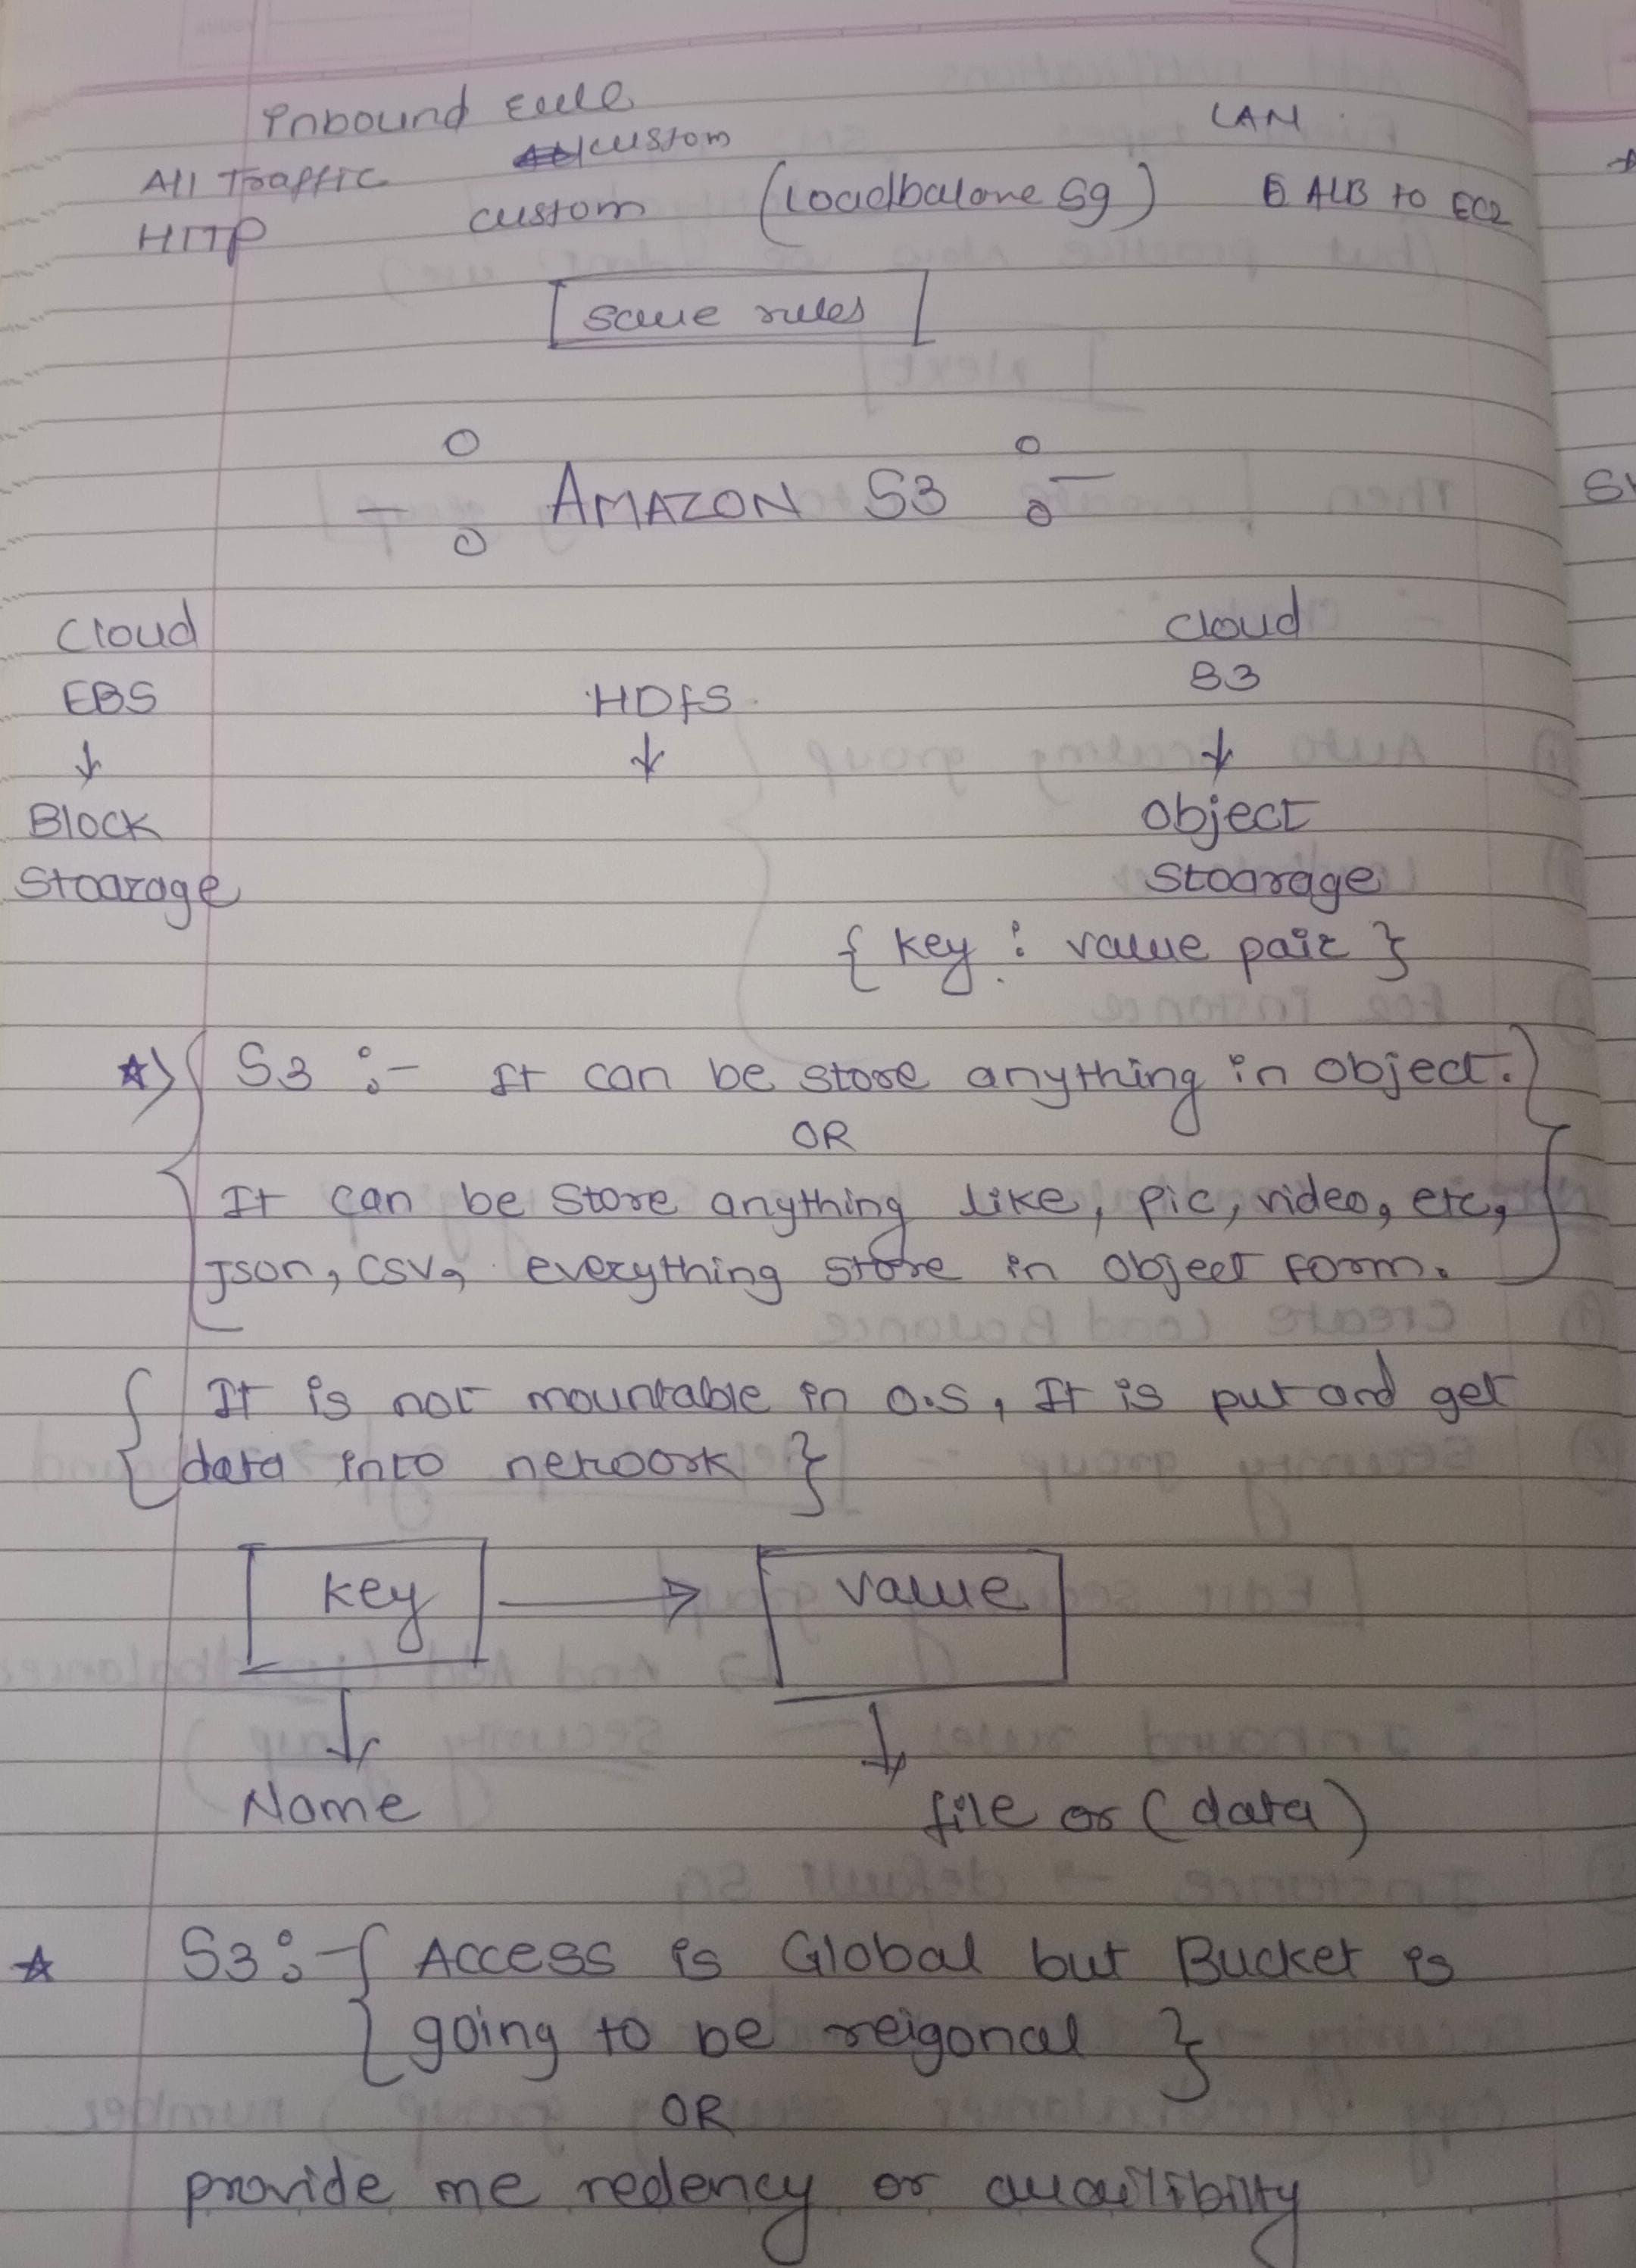 Inbound rule
LAN
All Traffic custom
HTTP custom (Loadbalane sg) ALB to EC2
save rules
AMAZON S3
Cloud cloud
EBS HDFS S3
↓ ↓ ↓
Block object
Stoarage Stoarage
{ key : value pair }
S3 :- It can be store anything in object.
OR
It can be store anything like, pic, video, etc,
json, csv, everything store in object form.
{ It is not mountable in O.S, It is put and get
data into network }
key → value
Name file or (data)
S3 :- { Access is Global but Bucket is
going to be reigonal }
OR
provide me redency or availibilty